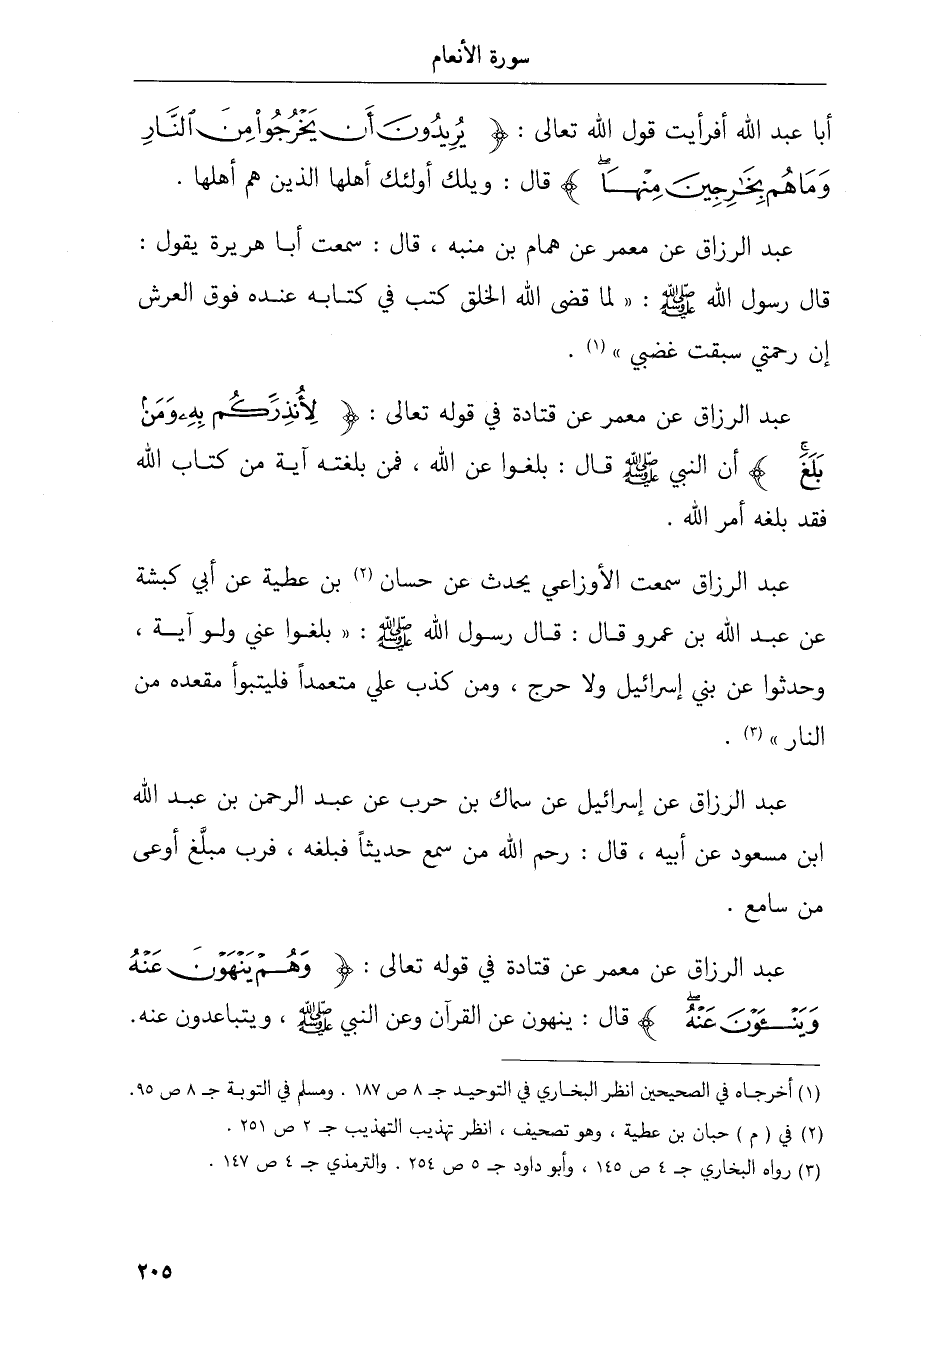 سورة الأنعام
أبا عبد الله أفرأيت قول الله تعالى : ﴿ يُرِيدُونَ أَن يَخْرُجُوا۟ مِنَ ٱلنَّارِ
وَمَا هُم بِخَٰرِجِينَ مِنْهَاۖ ﴾ قال : ويلك أولئك أهلها الذين هم أهلها .
عبد الرزاق عن معمر عن همام بن منبه ، قال : سمعت أبا هريرة يقول :
قال رسول الله ﷺ : « لما قضى الله الخلق كتب في كتابه عنده فوق العرش
إن رحمتي سبقت غضبي » (١) .
عبد الرزاق عن معمر عن قتادة في قوله تعالى : ﴿ لِأُنذِرَكُم بِهِۦ وَمَنۢ
بَلَغَۚ ﴾ أن النبي ﷺ قال : بلغوا عن الله ، فمن بلغته آية من كتاب الله
فقد بلغه أمر الله .
عبد الرزاق سمعت الأوزاعي يحدث عن حسان (٢) بن عطية عن أبي كبشة
عن عبد الله بن عمرو قال : قال رسول الله ﷺ : « بلغوا عني ولو آية ،
وحدثوا عن بني إسرائيل ولا حرج ، ومن كذب علي متعمداً فليتبوأ مقعده من
النار » (٣) .
عبد الرزاق عن إسرائيل عن سماك بن حرب عن عبد الرحمن بن عبد الله
ابن مسعود عن أبيه ، قال : رحم الله من سمع حديثاً فبلغه ، فرب مبلَّغ أوعى
من سامع .
عبد الرزاق عن معمر عن قتادة في قوله تعالى : ﴿ وَهُمْ يَنْهَوْنَ عَنْهُ
وَيَنْـَٔوْنَ عَنْهُۖ ﴾ قال : ينهون عن القرآن وعن النبي ﷺ ، ويتباعدون عنه.
(١) أخرجاه في الصحيحين انظر البخاري في التوحيد جـ ٨ ص ١٨٧ . ومسلم في التوبة جـ ٨ ص ٩٥.
(٢) في ( م ) حبان بن عطية ، وهو تصحيف ، انظر تهذيب التهذيب جـ ٢ ص ٢٥١ .
(٣) رواه البخاري جـ ٤ ص ١٤٥ ، وأبو داود جـ ٥ ص ٢٥٤ . والترمذي جـ ٤ ص ١٤٧ .
٢٠٥